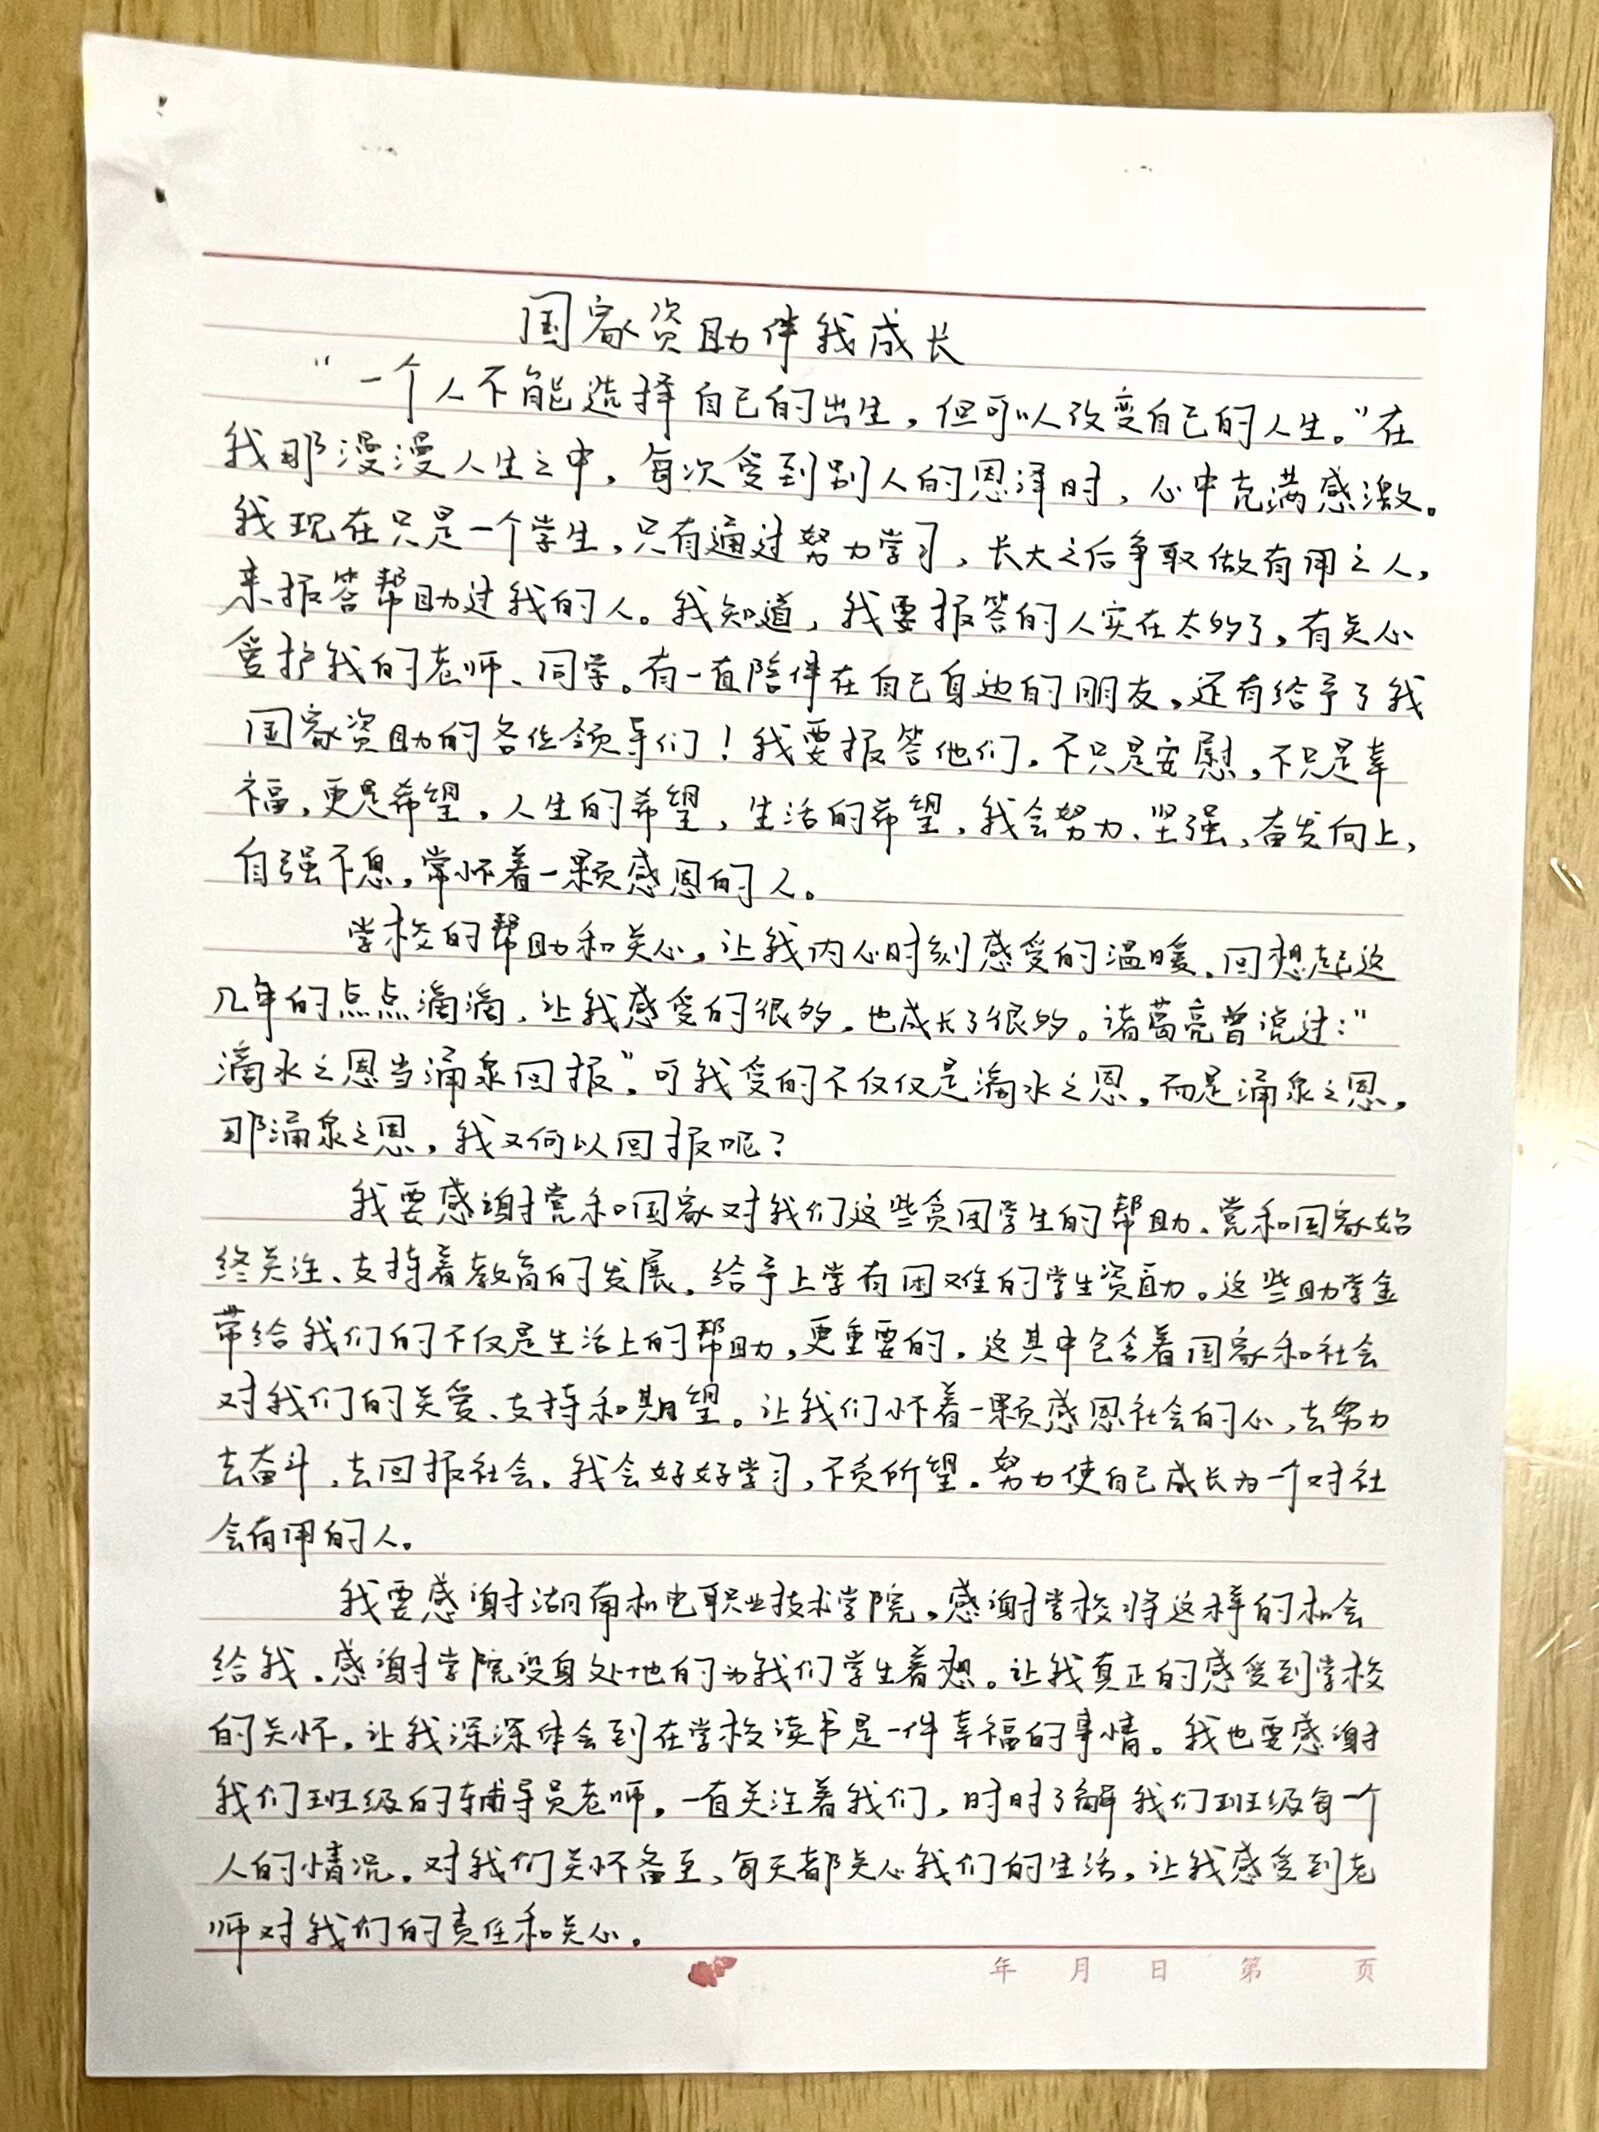 国家资助伴我成长
"一个人不能选择自己的出生，但可以改变自己的人生。"在
我那漫漫人生之中，每次受到别人的恩泽时，心中充满感激。
我现在只是一个学生，只有通过努力学习，长大之后争取做有用之人，
来报答帮助过我的人。我知道，我要报答的人实在太多了，有关心
爱护我的老师、同学。有一直陪伴在自己身边的朋友，还有给予了我
国家资助的各位领导们！我要报答他们，不只是安慰，不只是幸
福，更是希望，人生的希望，生活的希望，我会努力、坚强，奋发向上，
自强不息，常怀着一颗感恩的人。
学校的帮助和关心，让我内心时刻感受的温暖，回想起这
几年的点点滴滴，让我感受的很多，也成长了很多。诸葛亮曾说过："
滴水之恩当涌泉回报"，可我受的不仅仅是滴水之恩，而是涌泉之恩，
那涌泉之恩，我又何以回报呢？
我要感谢党和国家对我们这些贫困学生的帮助、党和国家始
终关注、支持着教育的发展，给予上学有困难的学生资助。这些助学金
带给我们的不仅是生活上的帮助，更重要的，这其中包含着国家和社会
对我们的关爱、支持和期望。让我们怀着一颗感恩社会的心，去努力
去奋斗，去回报社会，我会好好学习，不负所望。努力使自己成长为一个对社
会有用的人。
我要感谢湖南机电职业技术学院，感谢学校将这样的机会
给我，感谢学院设身处地的为我们学生着想。让我真正的感受到学校
的关怀，让我深深体会到在学校读书是一件幸福的事情。我也要感谢
我们班级的辅导员老师，一直关注着我们，时时了解我们班级每一个
人的情况，对我们关怀备至，每天都关心我们的生活，让我感受到老
师对我们的责任和关心。
年 月 日 第 页